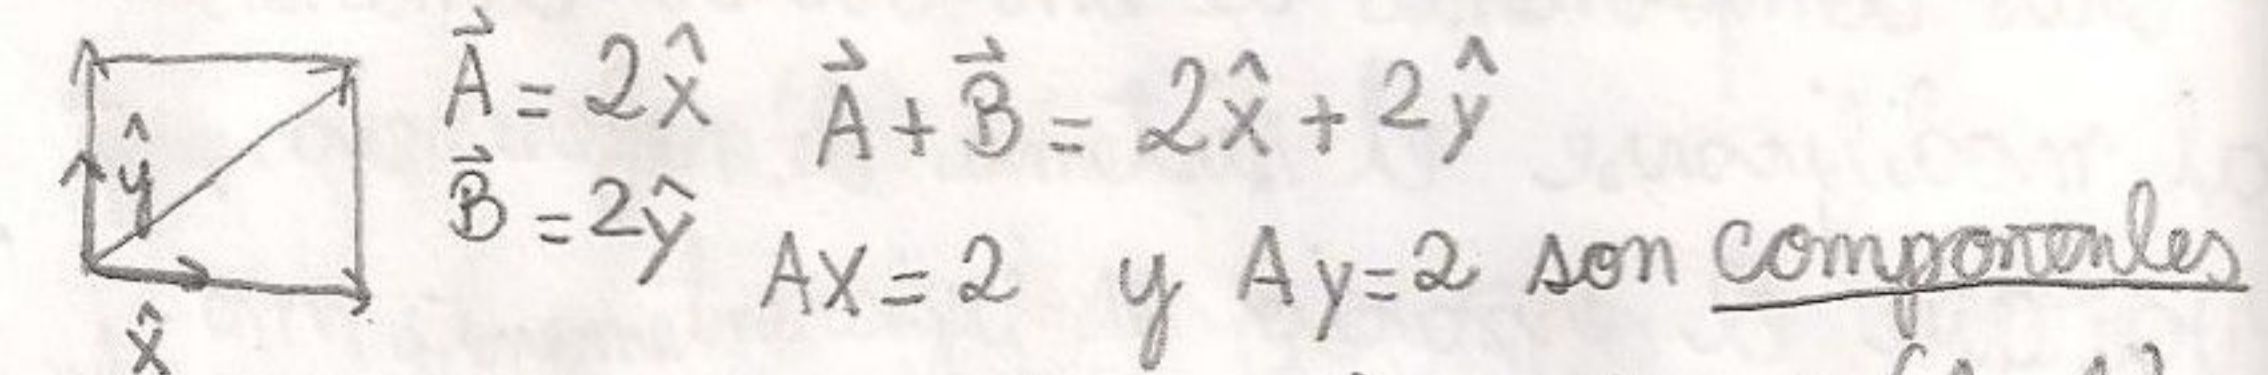 ŷ
x̂
A⃗ = 2x̂   A⃗ + B⃗ = 2x̂ + 2ŷ
B⃗ = 2ŷ
AX = 2 y Ay = 2 son componentes